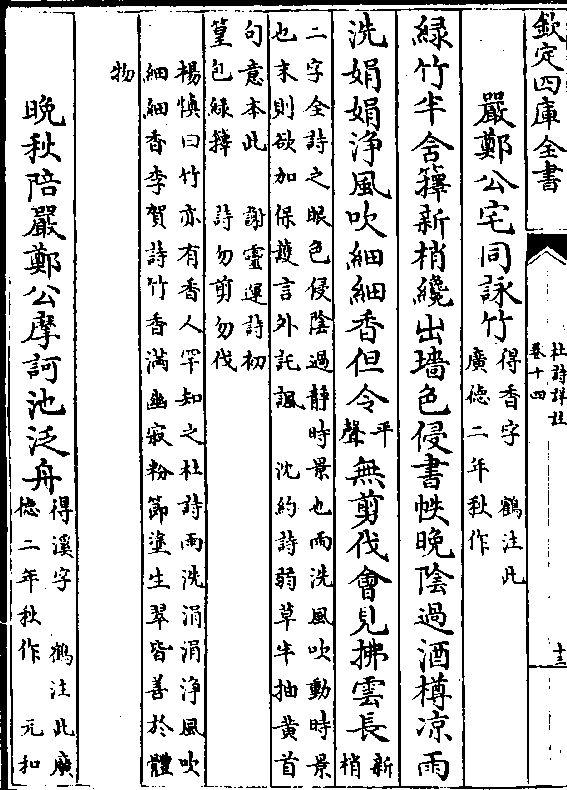 欽定四庫全書
杜詩詳註
卷十四
十三
嚴鄭公宅同詠竹得香字 鶴注此
廣德二年秋作
緑竹半含籜新梢纔出墻色侵書帙晩陰過酒樽凉雨
洗娟娟浄風吹細細香但令平聲無剪伐會見拂雲長新梢
二字全詩之眼色侵陰過静時景也雨洗風吹動時景
也末則欲加保護言外託諷 沈約詩弱草半抽黄首
句意本此 謝靈運詩初
篁包緑籜 詩勿剪勿伐
楊慎曰竹亦有香人罕知之杜詩雨洗涓涓浄風吹
細細香李賀詩竹香滿幽寂粉節塗生翠皆善於體
物
晚秋陪嚴鄭公摩訶池泛舟得溪字 鶴注此廣
德二年秋作 元和